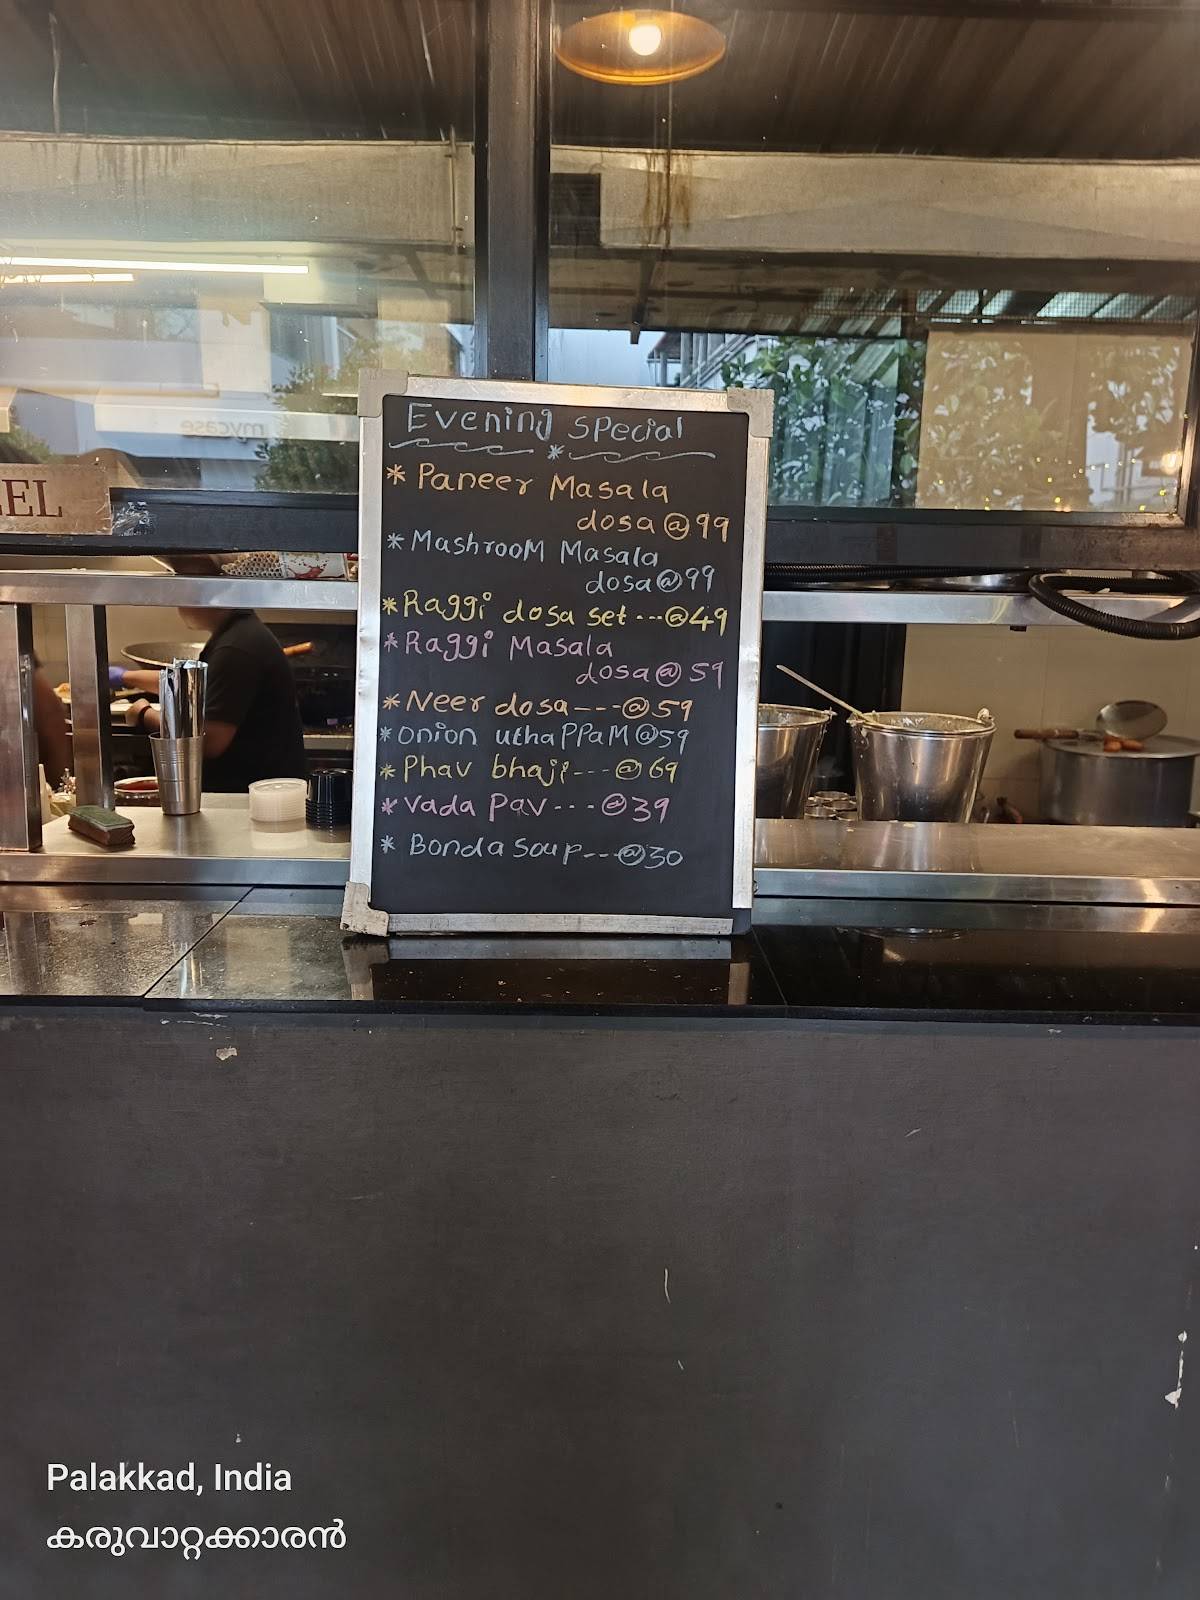 Evening Special
* Paneer Masala
dosa @ 99
* MashrooM Masala
dosa @ 99
* Raggi dosa set --- @ 49
* Raggi Masala
dosa @ 59
* Neer dosa --- @ 59
* onion uthaPPaM @ 59
* Phav bhaji --- @ 69
* Vada Pav --- @ 39
* Bonda Soup --- @ 30
mycase
EL
Palakkad, India
കരുവാറ്റക്കാരൻ